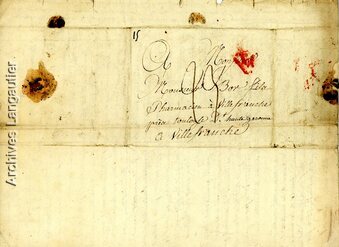 15
A Mon
Monsieur Bor fils
Pharmacien à Villefranche
près Toulouse Dt haute garonne
à Villefranche
Archives Langautier